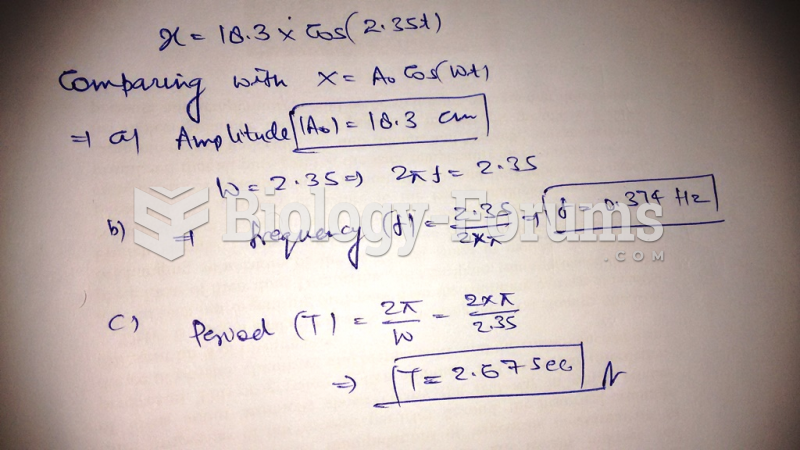 x = 18.3 × Cos(2.35t)
Comparing with x = A₀ Cos(Wt)
⇒ a) Amplitude (A₀) = 18.3 cm
W = 2.35 ⇒ 2πf = 2.35
b) ⇒ frequency (f) = 2.35/2×π ⇒ f = 0.374 Hz
Biology-Forums
.COM
c) Period (T) = 2π/W = 2×π/2.35
⇒ T = 2.67 sec